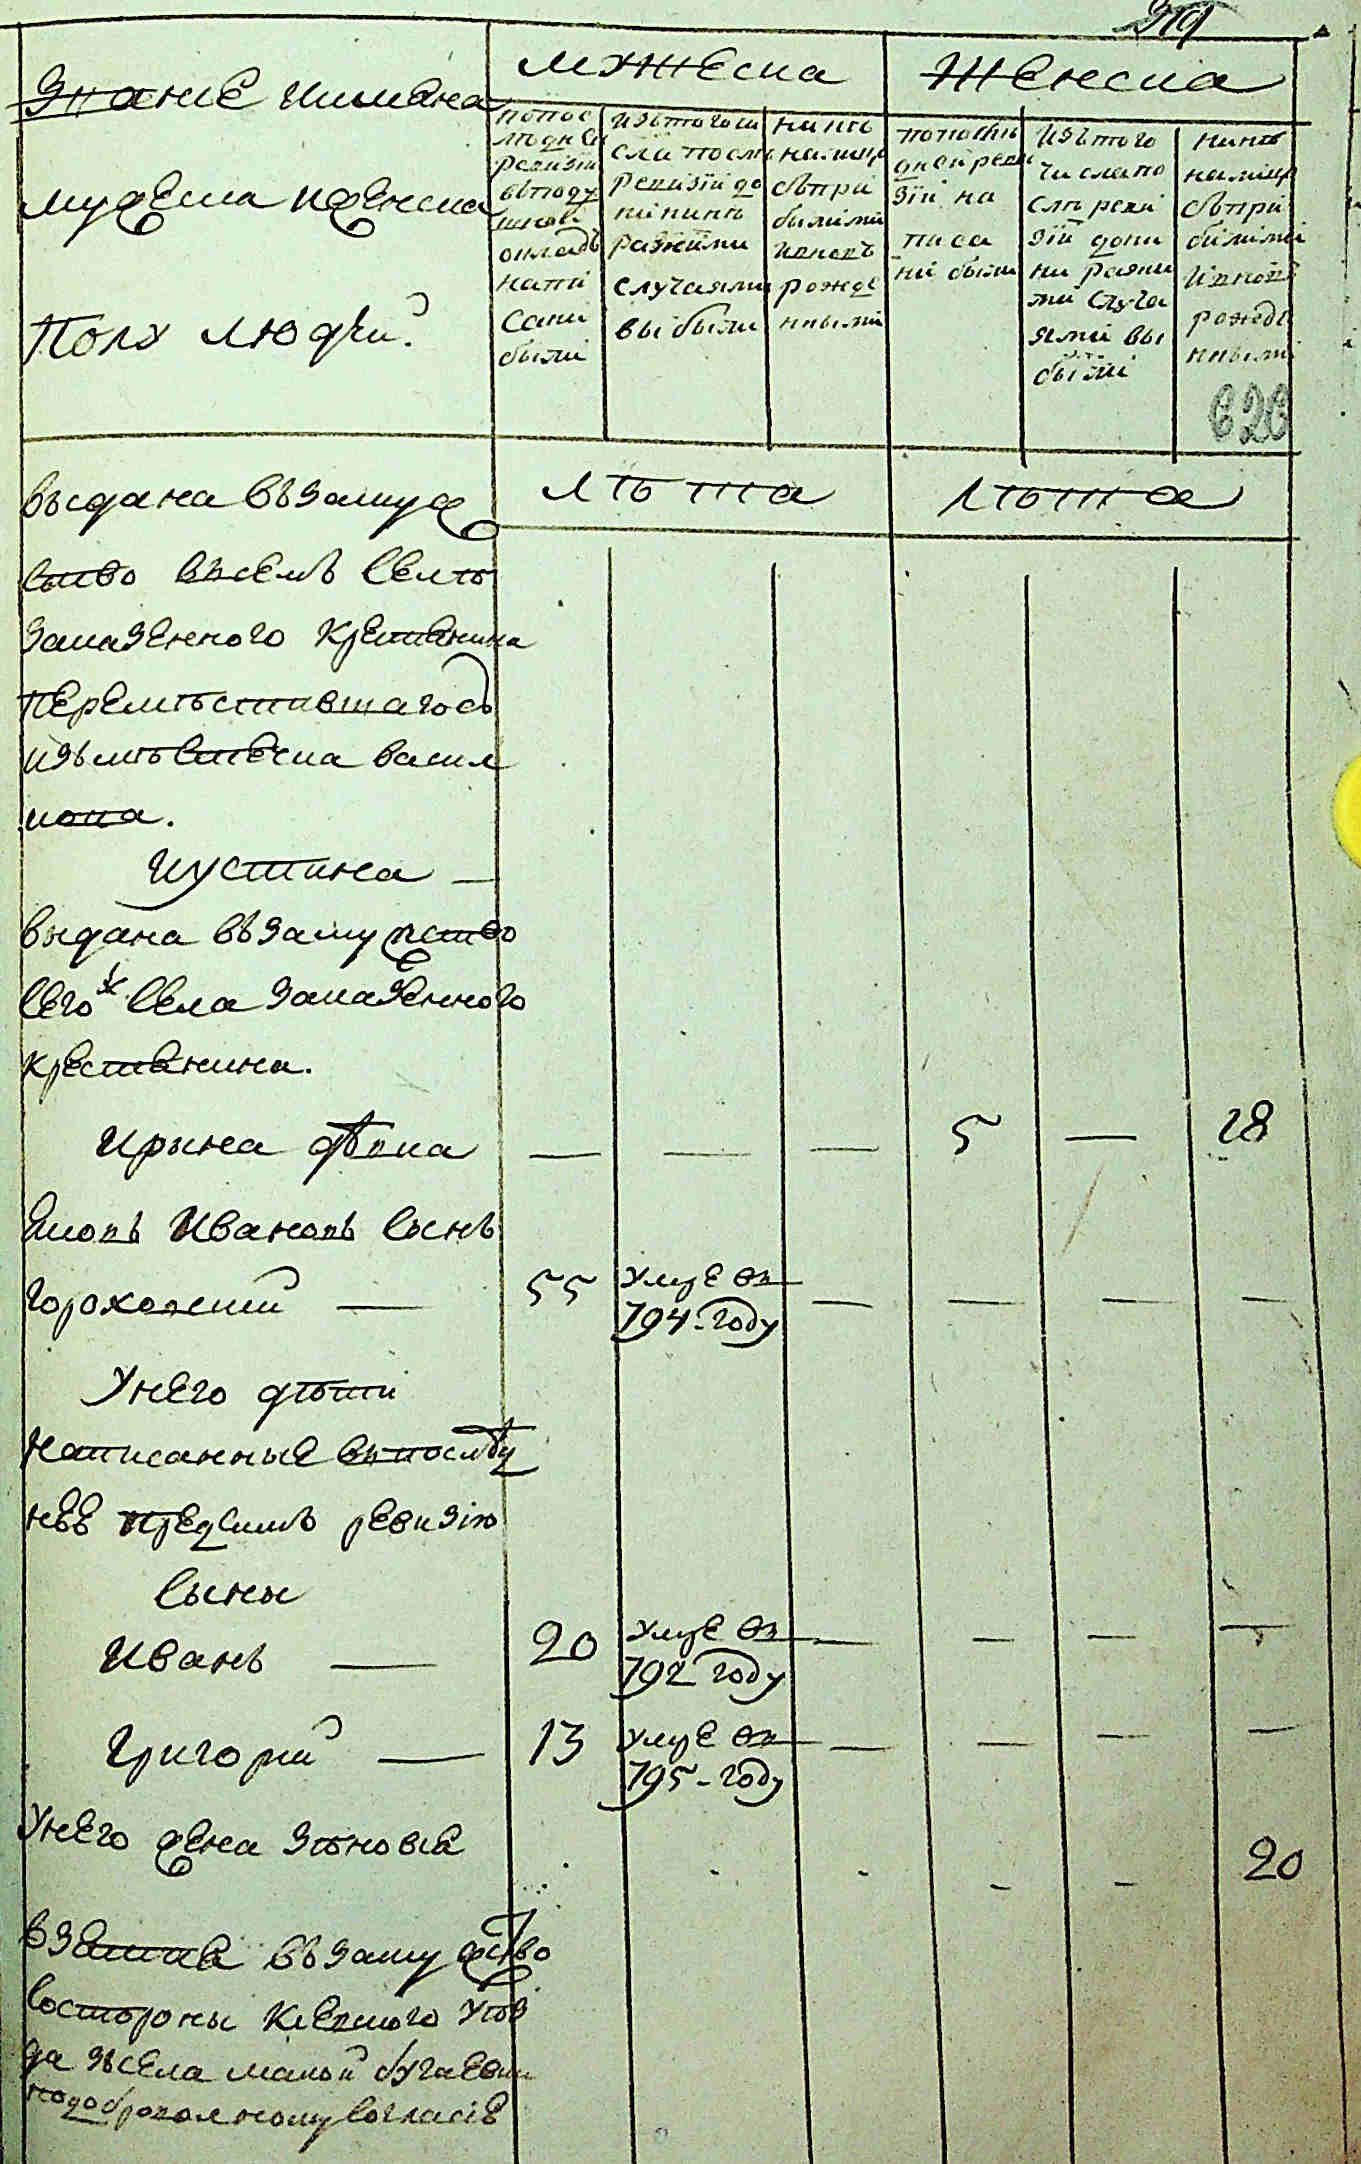 Звание имена
мужеска и женска
полу людей.
мужеска
женска
по пос
ледней
ревизии
въ поду
шной
окладъ
напи
сани
были
изъ того чи
сла после
ревизіи до
нинѣ
разними
случаями
выбыли
нинѣ
на лице
съ при
былими
и вновь
рожде
нными
по после
дней реви
зіи на
писа
ни были
изъ того
числа по
слѣ реви
зіи дони
ни разни
ми случа
ями вы
были
нинѣ
на лице
съ при
билими
и вновь
рожде
нными
626
лѣта
лѣта
выдана въ замуж
ство въ семъ селѣ
за казенного крестянина
перемѣстившагось
изъ мѣстечка Васил
кова.
Иустина —
выдана въ замужство
сего ж села за казенного
крестянина.
Ирина дѣвка — — — 5 — 28
Яковъ Ивановъ сынъ
Гороховский — 55 умре въ
794-году — — — —
У него дѣти
написанные въ послѣд
нее предъ симъ ревизію
сыны
Иванъ — 20 умре въ
792 году — — — —
Григорий — 13 умре въ
795-году — — — —
У него жена Зѣновіе — — — — — 20
взятие въ замужство
со стороны Киевского уѣз
да зъ села Малой Бугаевки
по доброволному согласіе